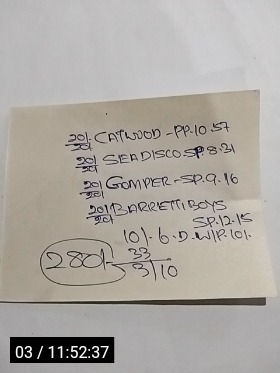 20/- CATWOOD - PP. 10.57
20/-
20/- SEADISCO - SP. 8.31
20/-
20/- GOMPER - SP. 9.16
20/-
20/- BARRETTIBOYS
20/- SP. 12.15
10/- 6. D. W/P. 10/-
280/- 33
3/10
03 / 11:52:37